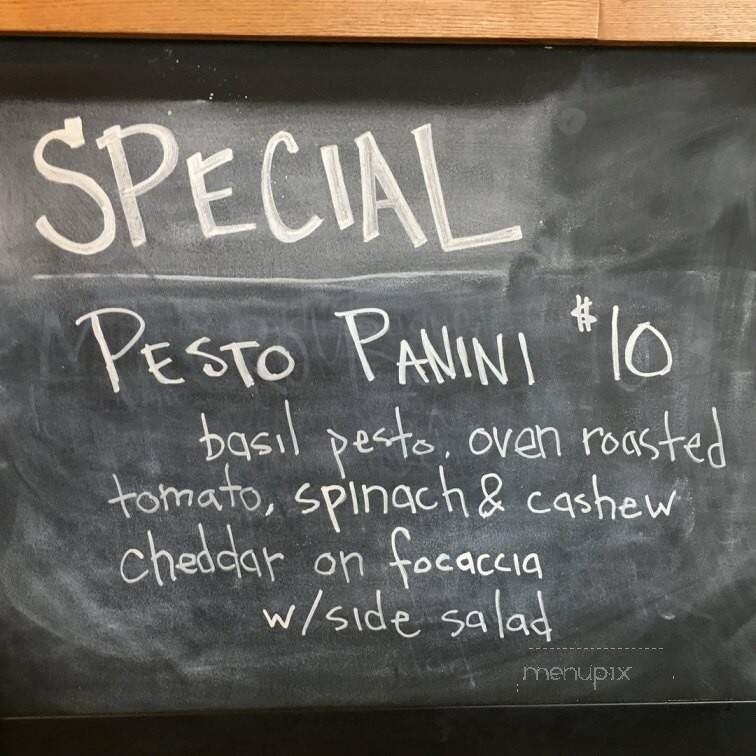 SPECIAL
PESTO PANINI $10
basil pesto, oven roasted
tomato, spinach & cashew
cheddar on focaccia
w/side salad
menupix